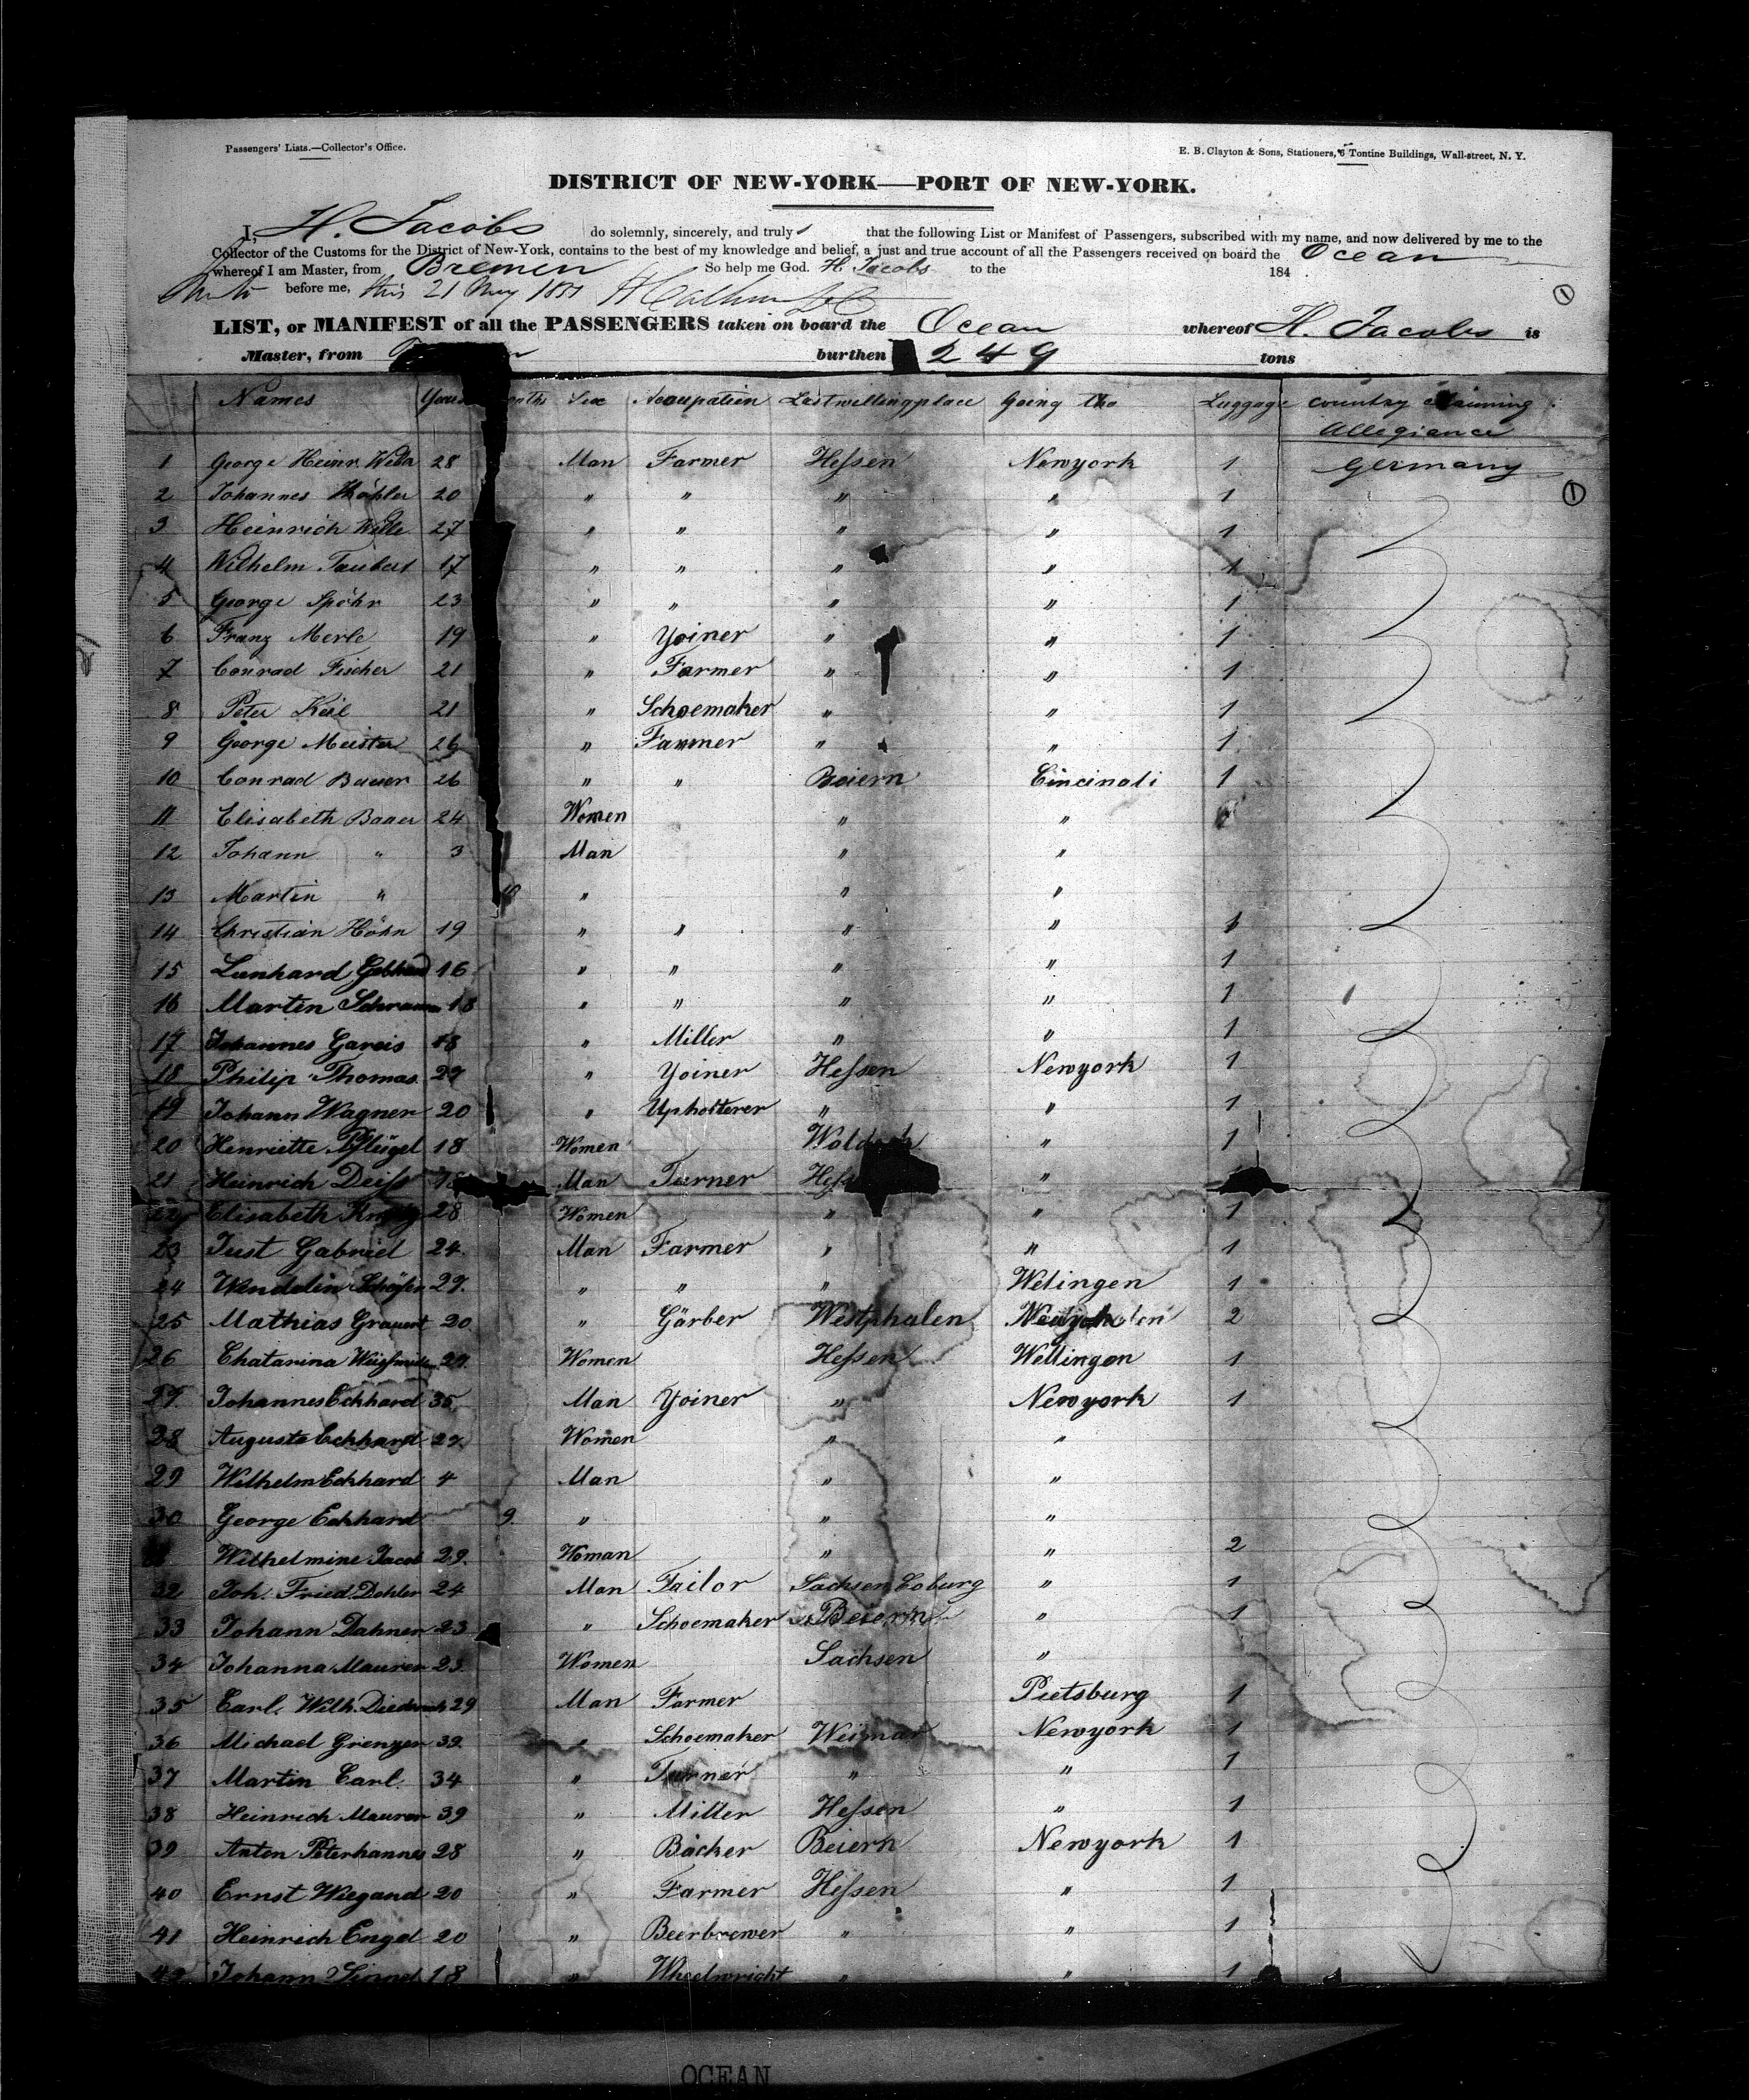 Passengers' Lists.—Collector's Office.
E. B. Clayton & Sons, Stationers, 6 Tontine Buildings, Wall-street, N. Y.
DISTRICT OF NEW-YORK—PORT OF NEW-YORK.
I, H. Jacobs do solemnly, sincerely, and truly that the following List or Manifest of Passengers, subscribed with my name, and now delivered by me to the
Collector of the Customs for the District of New-York, contains to the best of my knowledge and belief, a just and true account of all the Passengers received on board the Ocean
whereof I am Master, from Bremen So help me God. H. Jacobs to the 184
before me, this 21 May
LIST, or MANIFEST of all the PASSENGERS taken on board the Ocean whereof H. Jacobs is
Master, from burthen 249 tons
Names Years Sex Accupation Lastwillingplace Going tho Luggage country claiming
Allegiance
1 George Heinr. 28 Man Farmer Hessen Newyork 1 Germany
2 Johannes Köhler 20 " " " " 1
3 Heinrich Wille 27 " " " " 1
4 Wilhelm Taubert 17 " " " " 1
5 George Spöhr 23 " " " " 1
6 Franz Merle 19 " Yoiner " " 1
7 Conrad Fischer 21 " Farmer " " 1
8 Peter Keil 21 " Schoemaker " " 1
9 George Meister 26 " Farmer " " 1
10 Conrad Bauer 26 " " Beiern Cincinati 1
11 Elisabeth Bauer 24 Women " "
12 Johann " 3 Man " "
13 Martin " 10 " " "
14 Christian Höhn 19 " " " " 1
15 Leenhard Gebhard 16 " " " " 1
16 Martin Schramm 18 " " " " 1
17 Johannes Gareis 18 " Miller " " 1
18 Philip Thomas 29 " Yoiner Hessen Newyork 1
19 Johann Wagner 20 " Upholterer " " 1
20 Henriette Pflügel 18 Women " 1
21 Heinrich Deiss Man Turner "
22 Elisabeth 28 Women " " 1
23 Just Gabriel 24 Man Farmer " " 1
24 Wendelin Schäfer 29. " " " Welingen 1
25 Mathias Grauert 20 " Gärber Westphalen 2
26 Chatarina 29. Women Hessen Wellingen 1
27 Johannes Eckhard 35 Man Yoiner " Newyork 1
28 Auguste Eckhard 29. Women " "
29 Wilhelm Eckhard 4 Man " "
30 George Eckhard 9. " " "
Wilhelmine Jacob 29. Woman " " 2
32 Joh. Fried. Dohler 24 Man Tailor Sachsen Coburg " 1
33 Johann Dahner 23 " Schoemaker Beiern " 1
34 Johanna Maurer 23. Women Sachsen "
35 Carl. Wilh. Diederich 29 Man Farmer Pietsburg 1
36 Michael Grenzer 39. " Schoemaker Weimar Newyork 1
37 Martin Carl. 34 " Turner " " 1
38 Heinrich Maurer 39 " Miller Hessen " 1
39 Anton Peterhannes 28 " Bäcker Beiern Newyork 1
40 Ernst Wiegand 20 " Farmer Hessen " 1
41 Heinrich Engel 20 " Beerbrewer " " 1
42 Johann 18 " Wheelwright " " 1
OCEAN